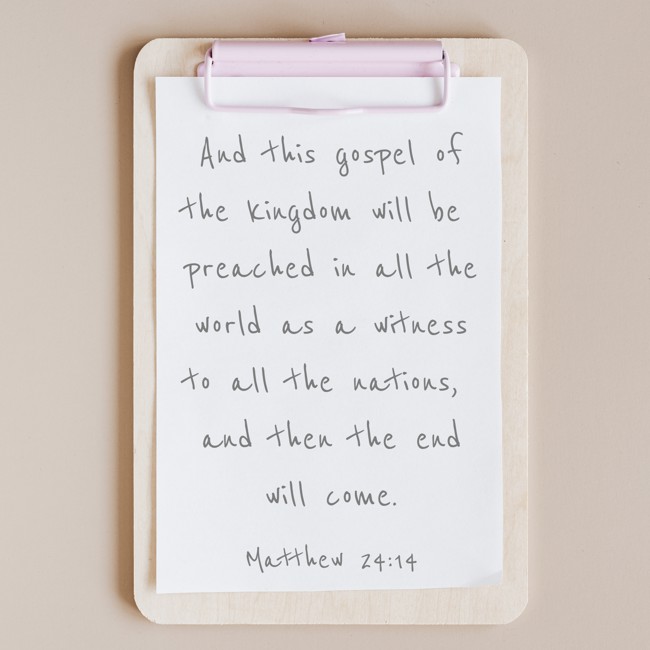 And this gospel of
the kingdom will be
preached in all the
world as a witness
to all the nations,
and then the end
will come.
Matthew 24:14